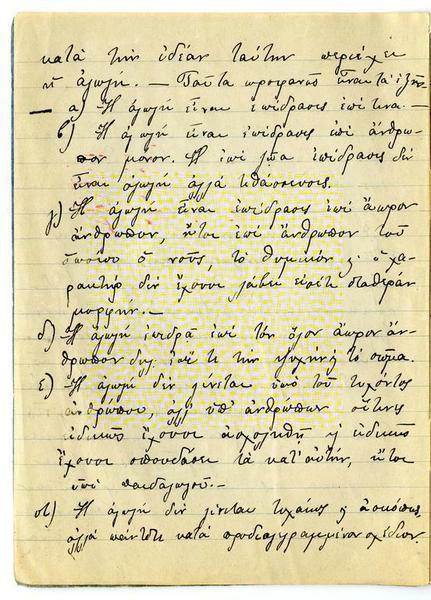 κατὰ τὴν ἰδέαν ταύτην περιέχει
ἡ ἀγωγή. — Ταῦτα προφανῶς εἶναι τὰ ἑξῆς·
— α) Ἡ ἀγωγή εἶναι ἐπίδρασις ἐπί τινα. —
β) Ἡ ἀγωγή εἶναι ἐπίδρασις ἐπὶ ἄνθρω-
πον μόνον. Ἡ ἐπὶ ζῷα ἐπίδρασις δὲν
εἶναι ἀγωγή ἀλλὰ τιθάσευσις.
γ) Ἡ ἀγωγή εἶναι ἐπίδρασις ἐπὶ ἄωρον
ἄνθρωπον, ἤτοι ἐπὶ ἄνθρωπον τοῦ
ὁποίου ὁ νοῦς, τὸ θυμικόν κ. ὁ χα-
ρακτὴρ δὲν ἔχουσι λάβει εἰσέτι σταθεράν
μορφήν. —
δ) Ἡ ἀγωγή ἐπιδρᾷ ἐπὶ τὸν ὅλον ἄωρον ἄν-
θρωπον δηλ. ἐπί τε τὴν ψυχήν κ τὸ σῶμα.
ε) Ἡ ἀγωγή δὲν γίνεται ὑπὸ τοῦ τυχόντος
ἀνθρώπου, ἀλλ' ὑπ' ἀνθρώπων οἵτινες
εἰδικῶς ἔχουσι ἀσχοληθῆ κ εἰδικῶς
ἔχουσι σπουδάσει τὰ κατ' αὐτήν, ἤτοι
ὑπὸ παιδαγωγοῦ. —
στ) Ἡ ἀγωγή δὲν γίνεται τυχαίως κ ἀσκόπως,
ἀλλὰ πάντοτε κατὰ προδιαγεγραμμένον σχέδιον